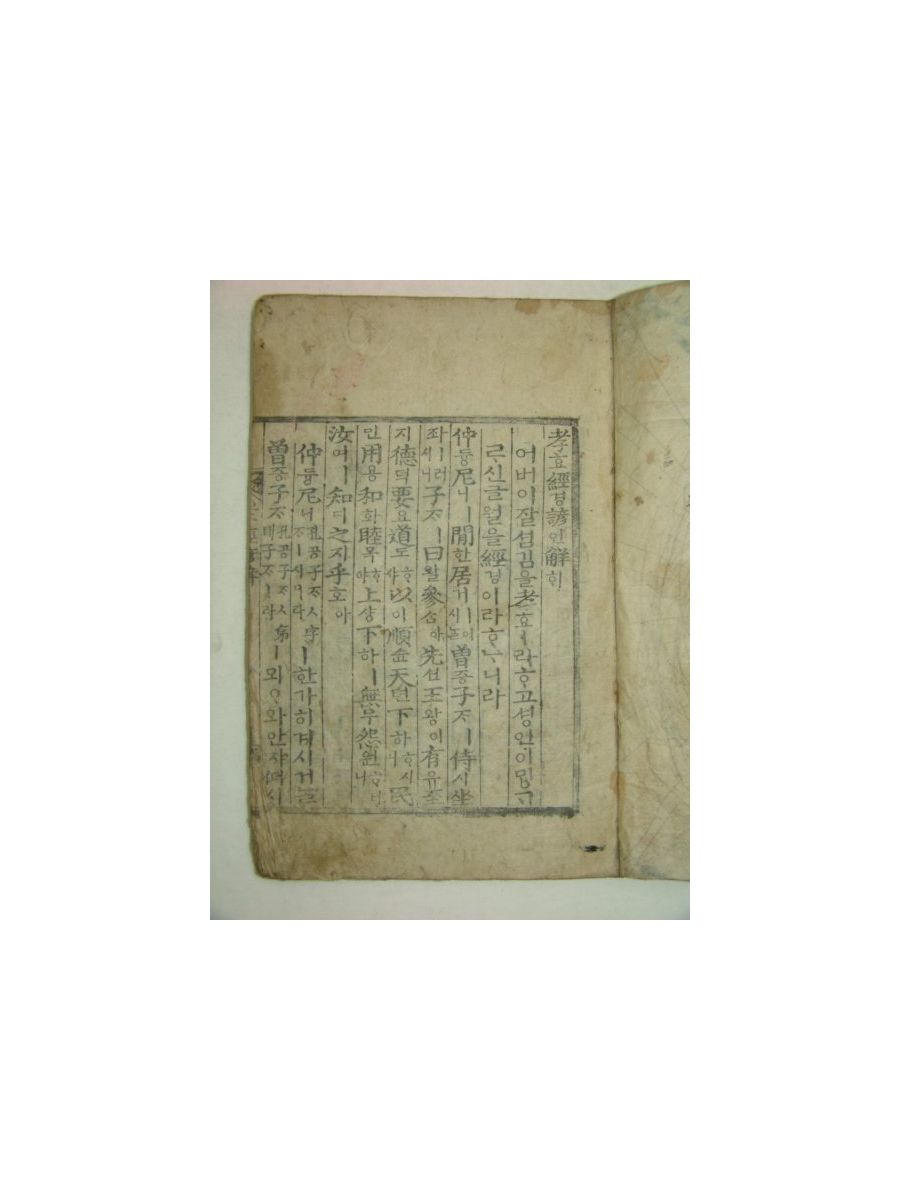 孝효經경諺언解ᄒᆡ
어버이잘섬김을孝효ㅣ라ᄒᆞ고셩인이ᄆᆡᇰᄀᆞ
ᄅᆞ신글월을經경이라ᄒᆞᄂᆞ니라
仲듕尼니ㅣ閒한居거ㅣ어시ᄂᆞᆯ曾증子ᄌᆞㅣ侍시坐
좌ㅣ러시니子ᄌᆞㅣ曰왈參ᄉᆞᆷ아先션王왕이有유至
지德덕要요道도ᄒᆞ샤以이順슌天텬下하ᄒᆞ시니民
민用용和화睦목ᄒᆞ야上샹下하ㅣ無무怨원ᄒᆞ니
汝여ㅣ知디之지乎호아
仲듕尼니孔공子ᄌᆞㅅ字ᄌᆞㅣ시니라ㅣ한가히겨시거ᄂᆞᆯ
曾증子ᄌᆞ孔공子ᄌᆞㅅ弟뎨子ᄌᆞㅣ라ㅣ뫼ᄋᆞ와안자더시